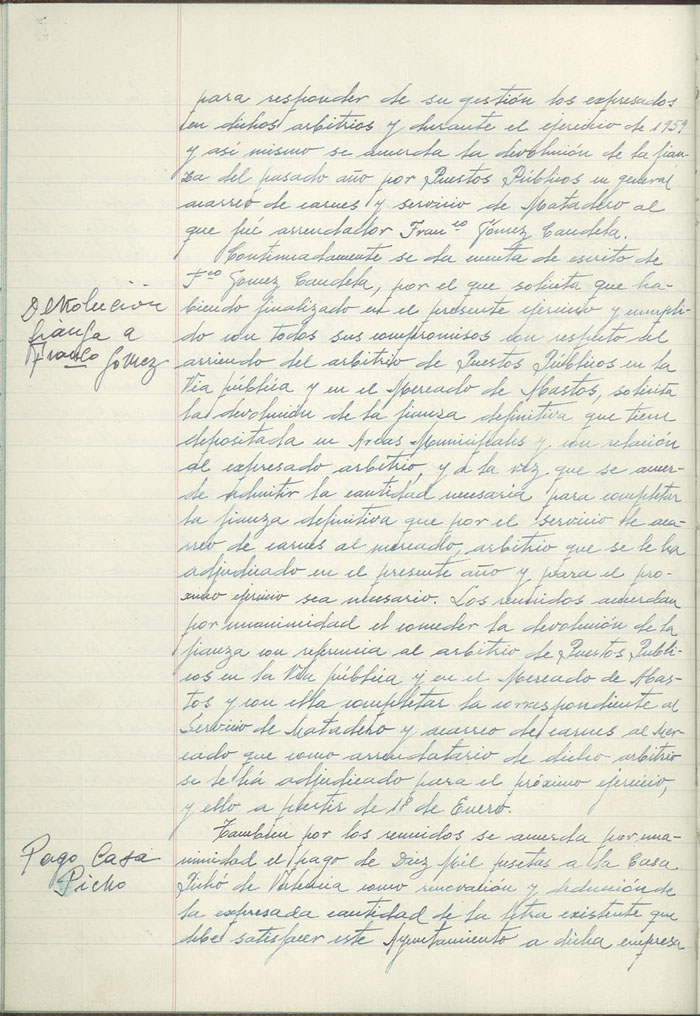 para responder de su gestión los expresados
en dichos arbitrios y durante el ejercicio de 1959
y así mismo se acuerda la devolución de la fian-
za del pasado año por Puestos Públicos en general
acarreo de carnes y servicio de Matadero al
que fué arrendador Franco Gómez Candela.
Continuadamente se da cuenta de escrito de
Fco Gomez Candela, por el que solicita que ha-
biendo finalizado en el presente ejercicio y cumpli-
do con todos sus compromisos con respecto del
arriendo del arbitrio de Puestos Públicos en la
Via pública y en el Mercado de Abastos, solicita
la devolución de la fianza definitiva que tiene
depositada en Arcas Municipales y con relación
al expresado arbitrio, y a la vez que se acuer-
de admitir la cantidad necesaria para completar
la fianza definitiva que por el servicio de aca-
rreo de carnes al mercado, arbitrio que se le ha
adjudicado en el presente año y para el pro-
ximo ejercicio sea necesario. Los reunidos acuerdan
por unanimidad el conceder la devolución de la
fianza con referencia al arbitrio de Puestos Publi-
cos en la Via pública y en el Mercado de Abas-
tos y con ella completar la correspondiente al
Servicio de Matadero y acarreo de carnes al Mer-
cado que como arrendatario de dicho arbitrio
se le ha adjudicado para el próximo ejercicio,
y ello a partir de 1º de Enero.
Tambien por los reunidos se acuerda por una-
nimidad el pago de Diez Mil pesetas a la Casa
Pichó de Valencia como renovación y deducción de
la expresada cantidad de la letra existente que
debe satisfacer este Ayuntamiento a dicha empresa
Devolución
fianza a
Franco Gómez
Pago Casa
Picho